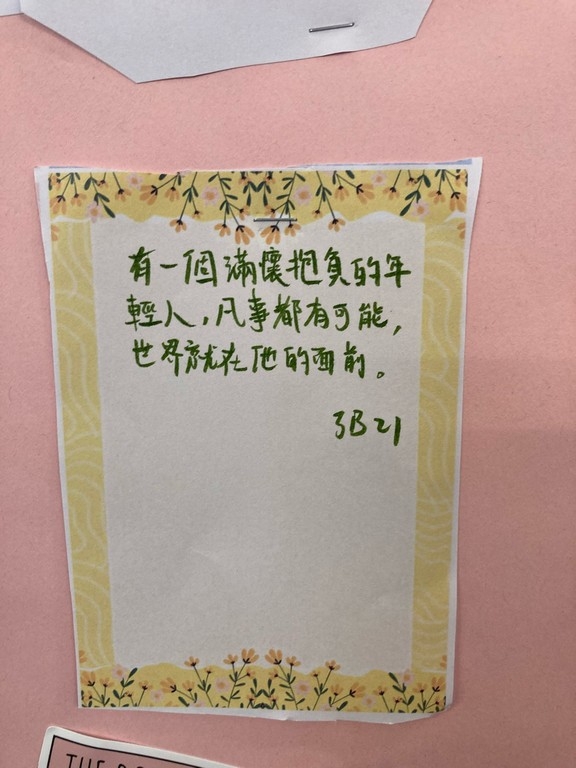 有一個滿懷抱負的年
輕人,凡事都有可能,
世界就在他的面前。
3B 21
THE